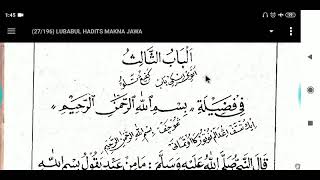 1:45
(27/196) LUBABUL HADITS MAKNA JAWA
اَلْبَابُ الثَّالِثُ
فِي فَضِيْلَةِ بِسْمِ اللّٰهِ الرَّحْمٰنِ الرَّحِيْمِ
بسم الله الرحمن الرحيم
قَالَ النَّبِيُّ صَلَّى اللّٰهُ عَلَيْهِ وَسَلَّمَ : مَا مِنْ عَبْدٍ يَقُوْلُ بِسْمِ اللّٰهِ